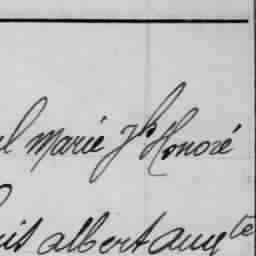 Marie Jh Honoré
Albert Augte